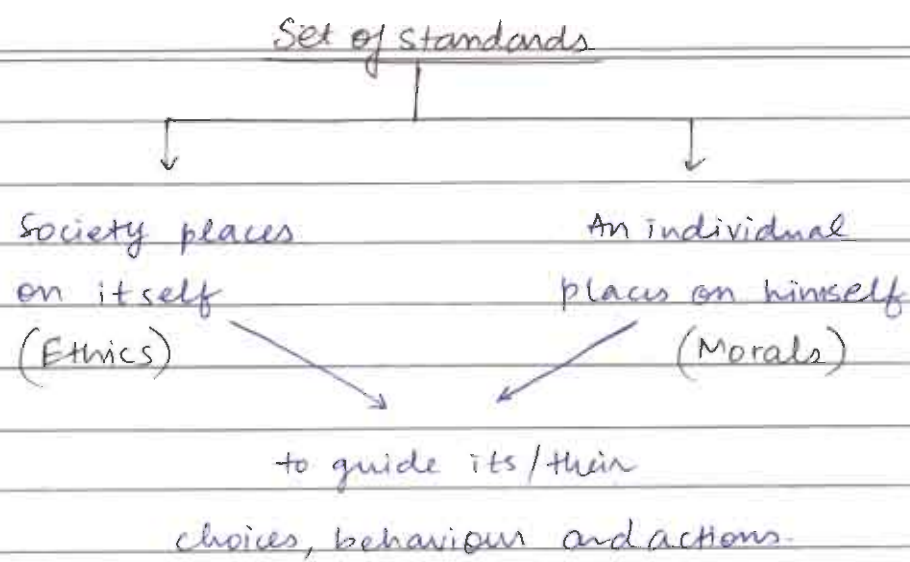 Set of standards
Society places
on itself
(Ethics)
An individual
places on himself
(Morals)
to guide its/their
choices, behaviour and actions.